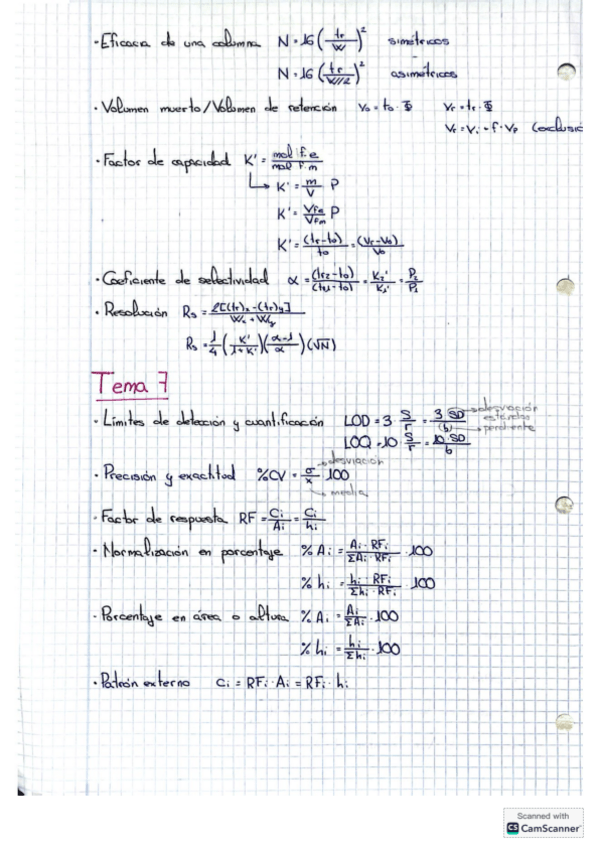 · Eficacia de una columna N = 16 (tr/W)² simétricos
N = 16 (tr/W1/2)² asimétricos
· Volumen muerto/Volumen de retención V₀ = t₀ · Φ Vr = tr · Φ
Vr = Vi + f · Vp (exclusió
· Factor de capacidad K' = mol f.e/mol f.m
↳ K' = m/V P
K' = VFe/VFm P
K' = (tr-t₀)/t₀ = (Vr-V₀)/V₀
· Coeficiente de selectividad α = (tr₂-t₀)/(tr₁-t₀) = K₂'/K₁' = P₂/P₁
· Resolución Rs = 2[(tr)x-(tr)y]/Wx+Wy
Rs = 1/4 (K'/1+K')(α-1/α)(√N)
Tema 7
· Límites de detección y cuantificación LOD = 3 · S/r = 3 SD/(b) → desviación estándar → pendiente
LOQ = 10 S/r = 10 · SD/b
· Precisión y exactitud %CV = σ/x · 100 → desviación → media
· Factor de respuesta RF = Ci/Ai = Ci/hi
· Normalización en porcentaje % Ai = Ai · RFi/ΣAi · RFi · 100
% hi = hi · RFi/Σhi · RFi · 100
· Porcentaje en área o altura % Ai = Ai/ΣAi · 100
% hi = hi/Σhi · 100
· Patrón externo Ci = RFi · Ai = RFi · hi
Scanned with
CS CamScanner